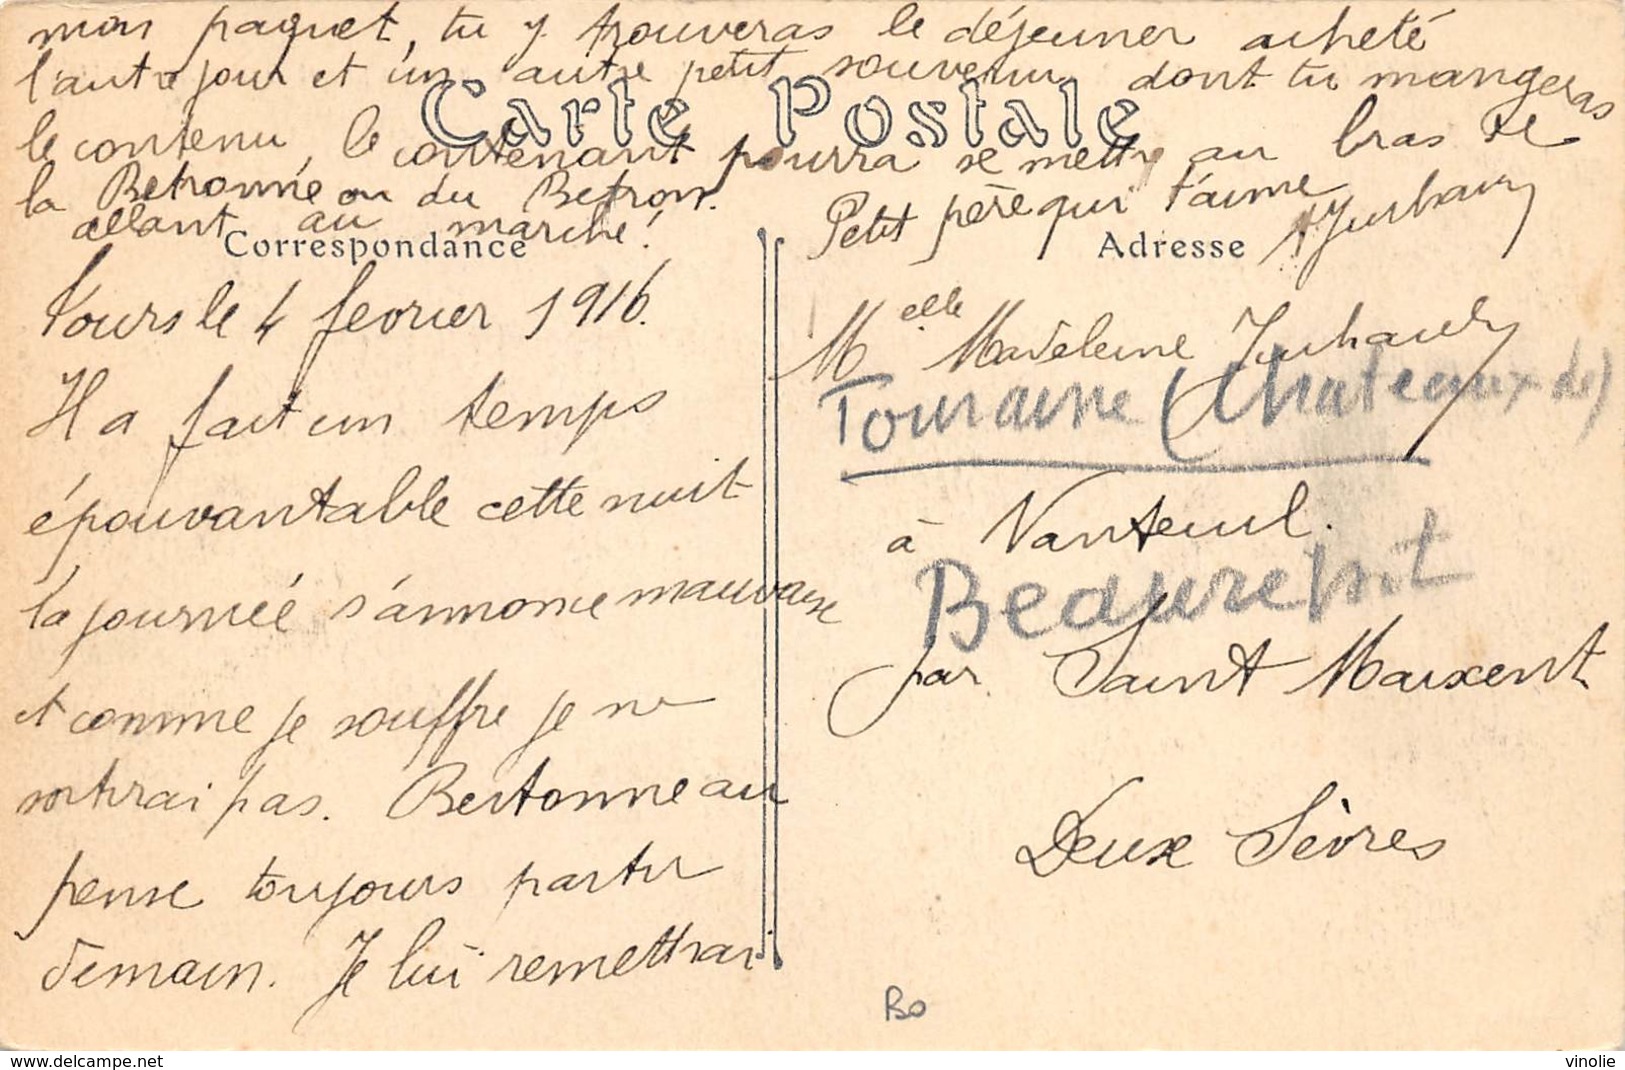 mon paquet, tu y trouveras le déjeuner acheté
l'autre jour et un autre petit souvenir dont tu mangeras
le contenu, le contenant pourra se mettre au bras de
la Betronne ou du Betron.
allant au marché!
Petit père qui t'aime
Carte Postale
Correspondance
Tours le 4 fevrier 1916.
Il a fait un temps
épouvantable cette nuit
la journée s'annonce mauvaise
et comme je souffre je ne
sortirai pas. Bertonneau
pense toujours partir
demain. Je lui remettrai
Adresse
Melle Madeleine
Touraine (Chateaux de)
à Nanteuil.
Beaurepist
par Saint Maixent
Deux Sèvres
Bo
www.delcampe.net
vinolie